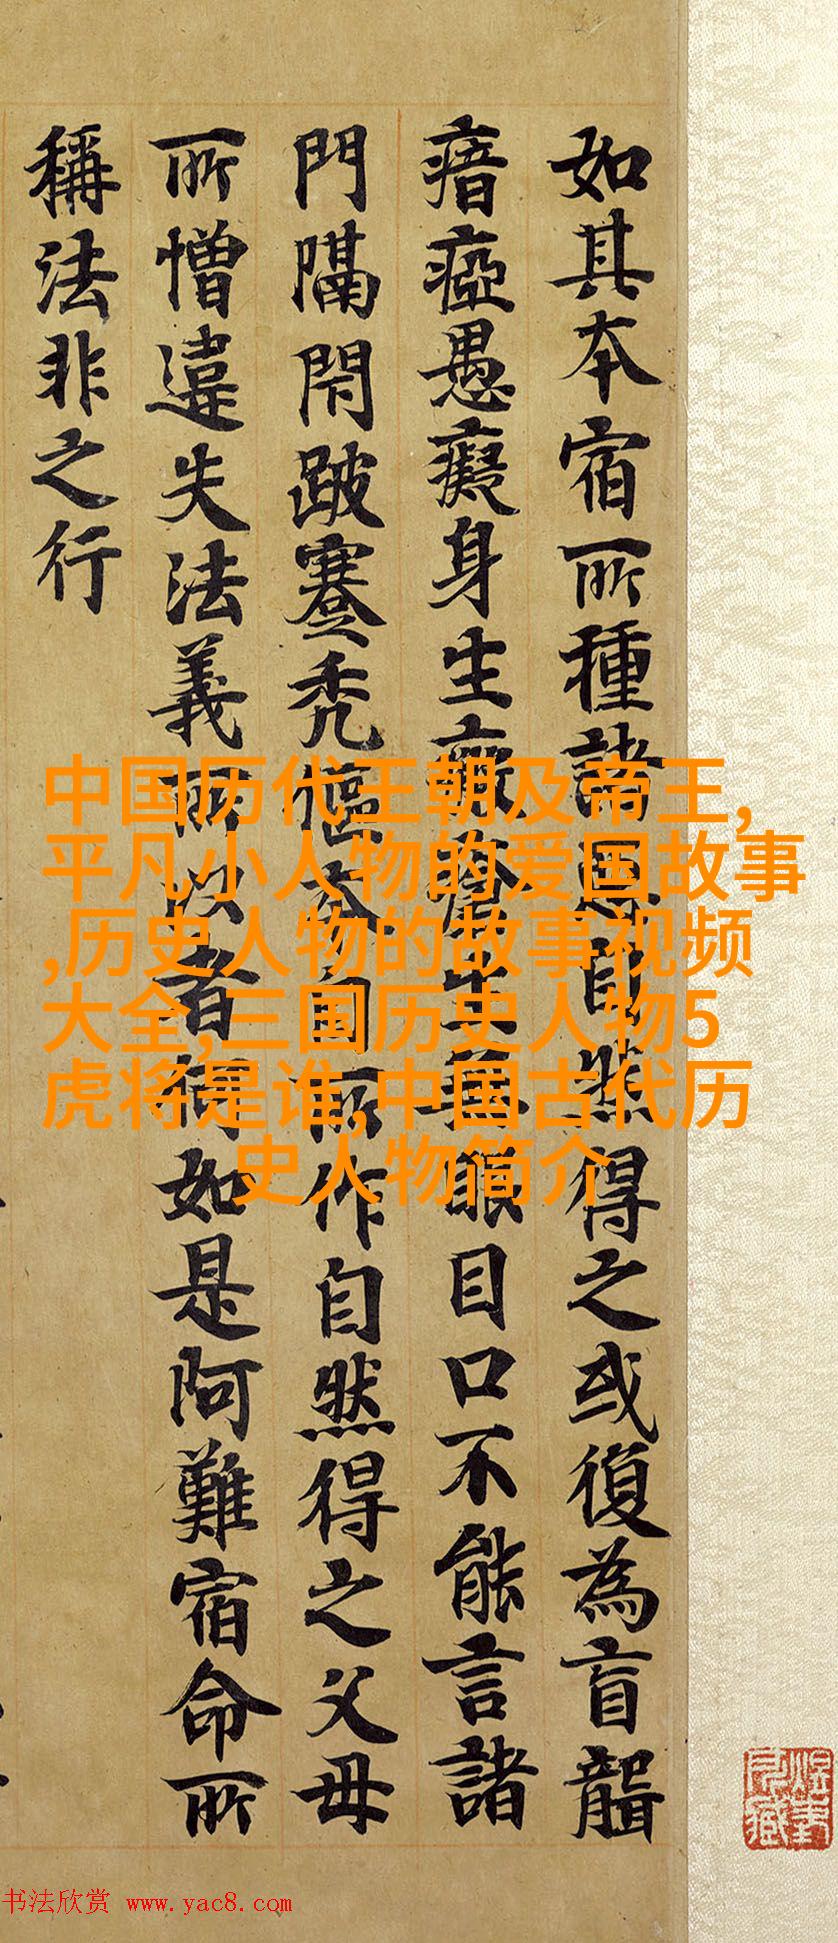 如其本宿所種諸惡自然得之或復為盲聾
瘖瘂愚癡身生瘡生無眼目口不能言諸
門隔閇跛蹇禿傴自所作自然得之父母
所憎違失法義所以者何如是阿難宿命所
稱法非之行
中国历代王朝及帝王,
平凡小人物的爱国故事
,历史人物的故事视频
大全,三国历史人物5
虎将是谁,中国古代历
史人物简介
书法欣赏 www.yac8.com